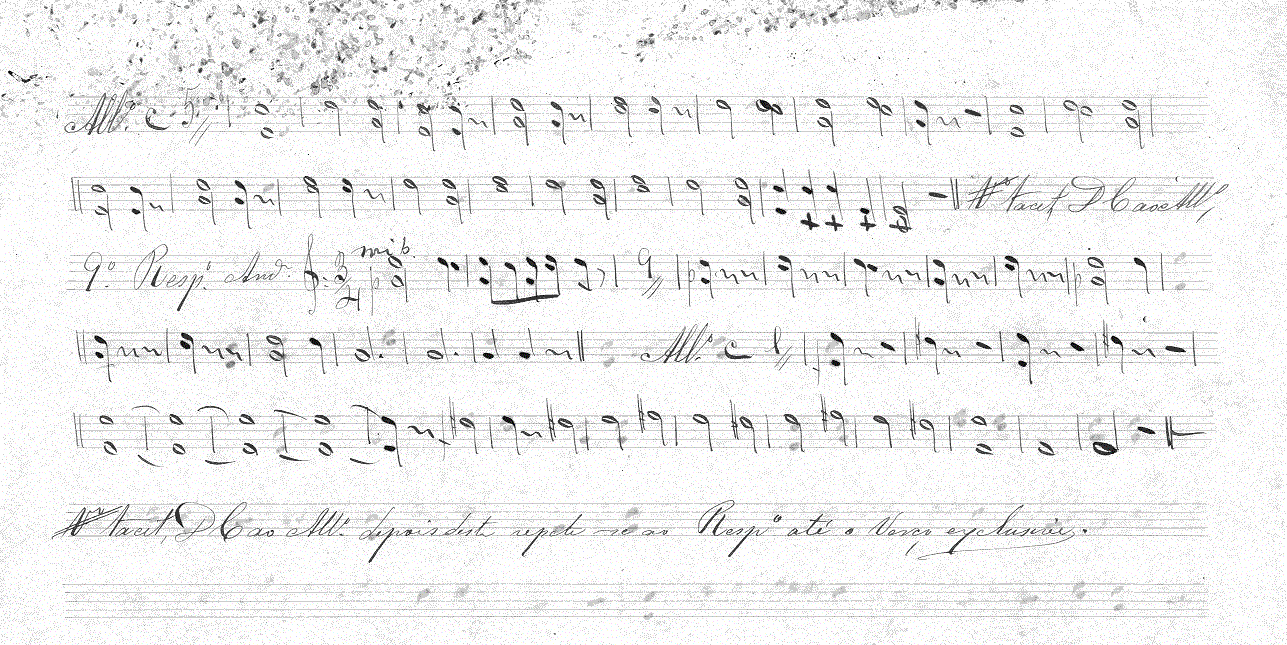 All.º C 5
V.º tacet D C ao All.º
9.º Resp.º And.e 3 4 mi b. p 9 p p
All.º C 1
V.º tacet, D C ao All.º depois deste repete-se ao Resp.º até o Verso exclusive.